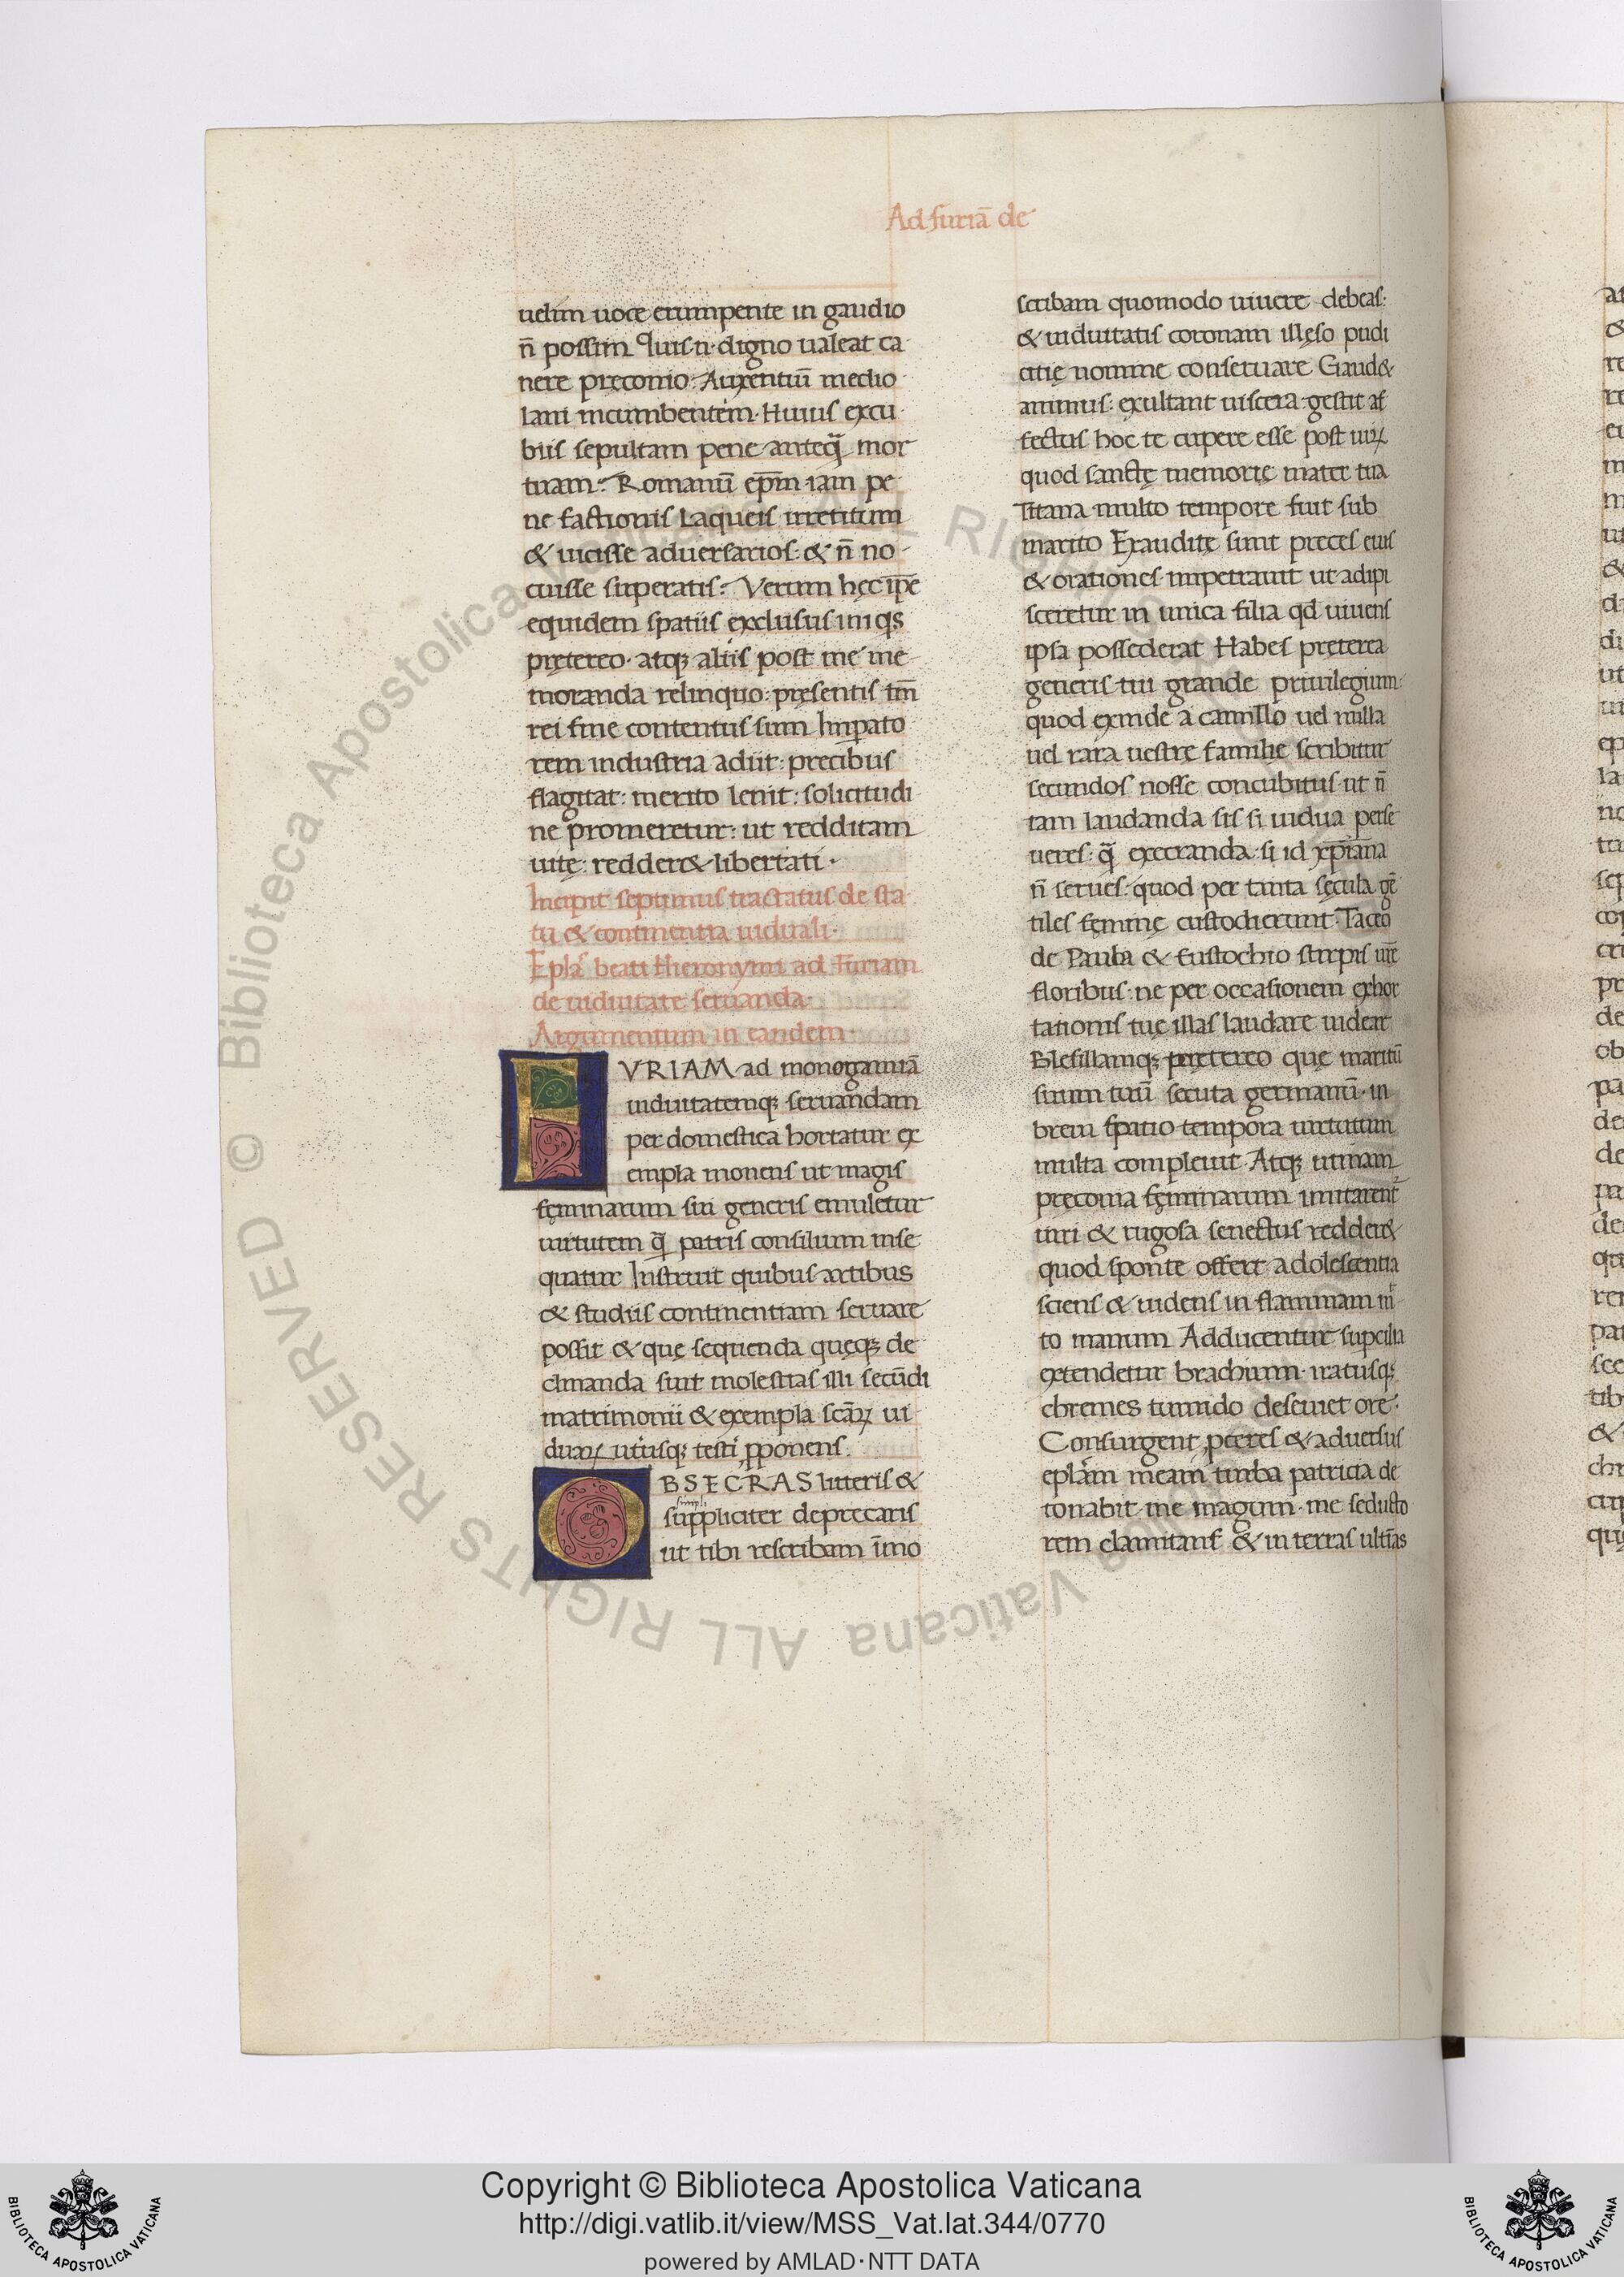 Ad furiā de
uelim uoce erumpente in gaudio
n̄ possim. Quis .n. digno ualeat ca
nere pręconio. Auxentiū medio
lani incumbentem. Huius excu
biis sepultam pene anteq̄ mor
tuam: Romanū ep̄m iam pe
ne factionis laqueis irretitum
& uicisse aduersarios: & n̄ no
cuisse superatis: Verum hęc ip̄e
equidem spatiis exclusus iniq̨s
pretereo. atq; aliis post me me
moranda relinquo: pręsentis tm̄
rei fine contentus sum Imꝑato
rem industria adiit: precibus
flagitat: merito lenit: solicitudi
ne promeretur: ut redditam
uitę: redder& libertati.
Incipit septimus tractatus de sta
tu & continentia uiduali.
Epła beati Hieronymi ad Furiam
de uiduitate seruanda.
Argumentum in eandem.
FVRIAM ad monogamiā
uiduitatemq; seruandam
per domestica hortatur ex
empla monens ut magis
fęminarum sui generis emuletur
uirtutem q̄ patris consilium inse
quatur Instruit quibus artibus
& studiis continentiam seruare
possit & que sequenda quęq; de
clinanda sint molestias illi secūdi
matrimonii & exempla scāꝝ ui
duaꝝ utiusq; testi ꝓponens.
OBSECRAS litteris &
simpli
suppliciter deprecaris
ut tibi rescribam īmo
scribam quomodo uiuere debeas:
& uiduitatis coronam illęso pudi
citię nomine conseruare Gaud&
animus: exultant uiscera gestit af
fectus hoc te cupere esse post uiꝝ
quod sanctę memorie mater tua
Titana multo tempore fuit sub
marito Exauditę sunt preces eius
& orationes impetrauit ut adipi
sceretur in unica filia qd uiuens
ipsa possederat Habes pręterea
generis tui grande priuilegium:
quod exinde a camillo uel nulla
uel rara uestrę familię scribitur
secundos nosse concubitus ut n̄
tam laudanda sis si uidua perse
ueres: q̄ execranda si id xp̄iana
n̄ serues: quod per tanta sęcula gē
tiles fęminę custodierunt. Taceo
de Paula & Eustochio stirpis ur̄e
floribus: ne per occasionem exhor
tationis tuę illas laudare uidear
Blesillamq; pretereo quę maritū
suum tuū secuta germanū. in
breui spatio tempora uirtutum
multa compleuit. Atq; utinam
pręconia fęminarum imitarent̄
uiri & rugosa senectus redder&
quod sponte offert adolescentia
sciens & uidens in flammam mit
to manum Adducentur suꝑcilia
extendetur brachium. iratusq;
chremes tumido deseuiet ore.
Consurgent ꝓceres & aduersus
epłam meam turba patricia de
tonabit me magum. me seducto
rem clamitans & in terras ultīas
Copyright © Biblioteca Apostolica Vaticana
http://digi.vatlib.it/view/MSS_Vat.lat.344/0770
powered by AMLAD·NTT DATA
BIBLIOTECA APOSTOLICA VATICANA
BIBLIOTECA APOSTOLICA VATICANA
© Biblioteca Apostolica Vaticana ALL RIGHTS RESERVED